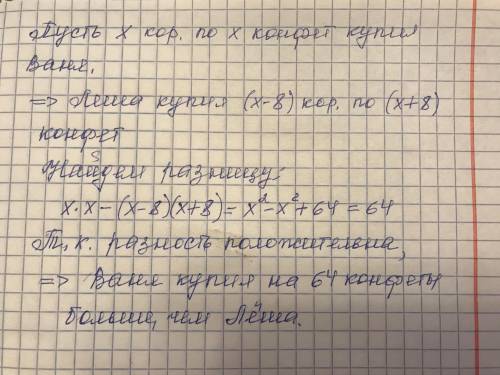 Пусть x кор. по x конфет купил
Ваня.
=> Лёша купил (x-8) кор. по (x+8)
конфет
Найдем разницу:
x·x-(x-8)(x+8)=x²-x²+64=64
Т.к. разность положительна,
=> Ваня купил на 64 конфеты
больше, чем Лёша.